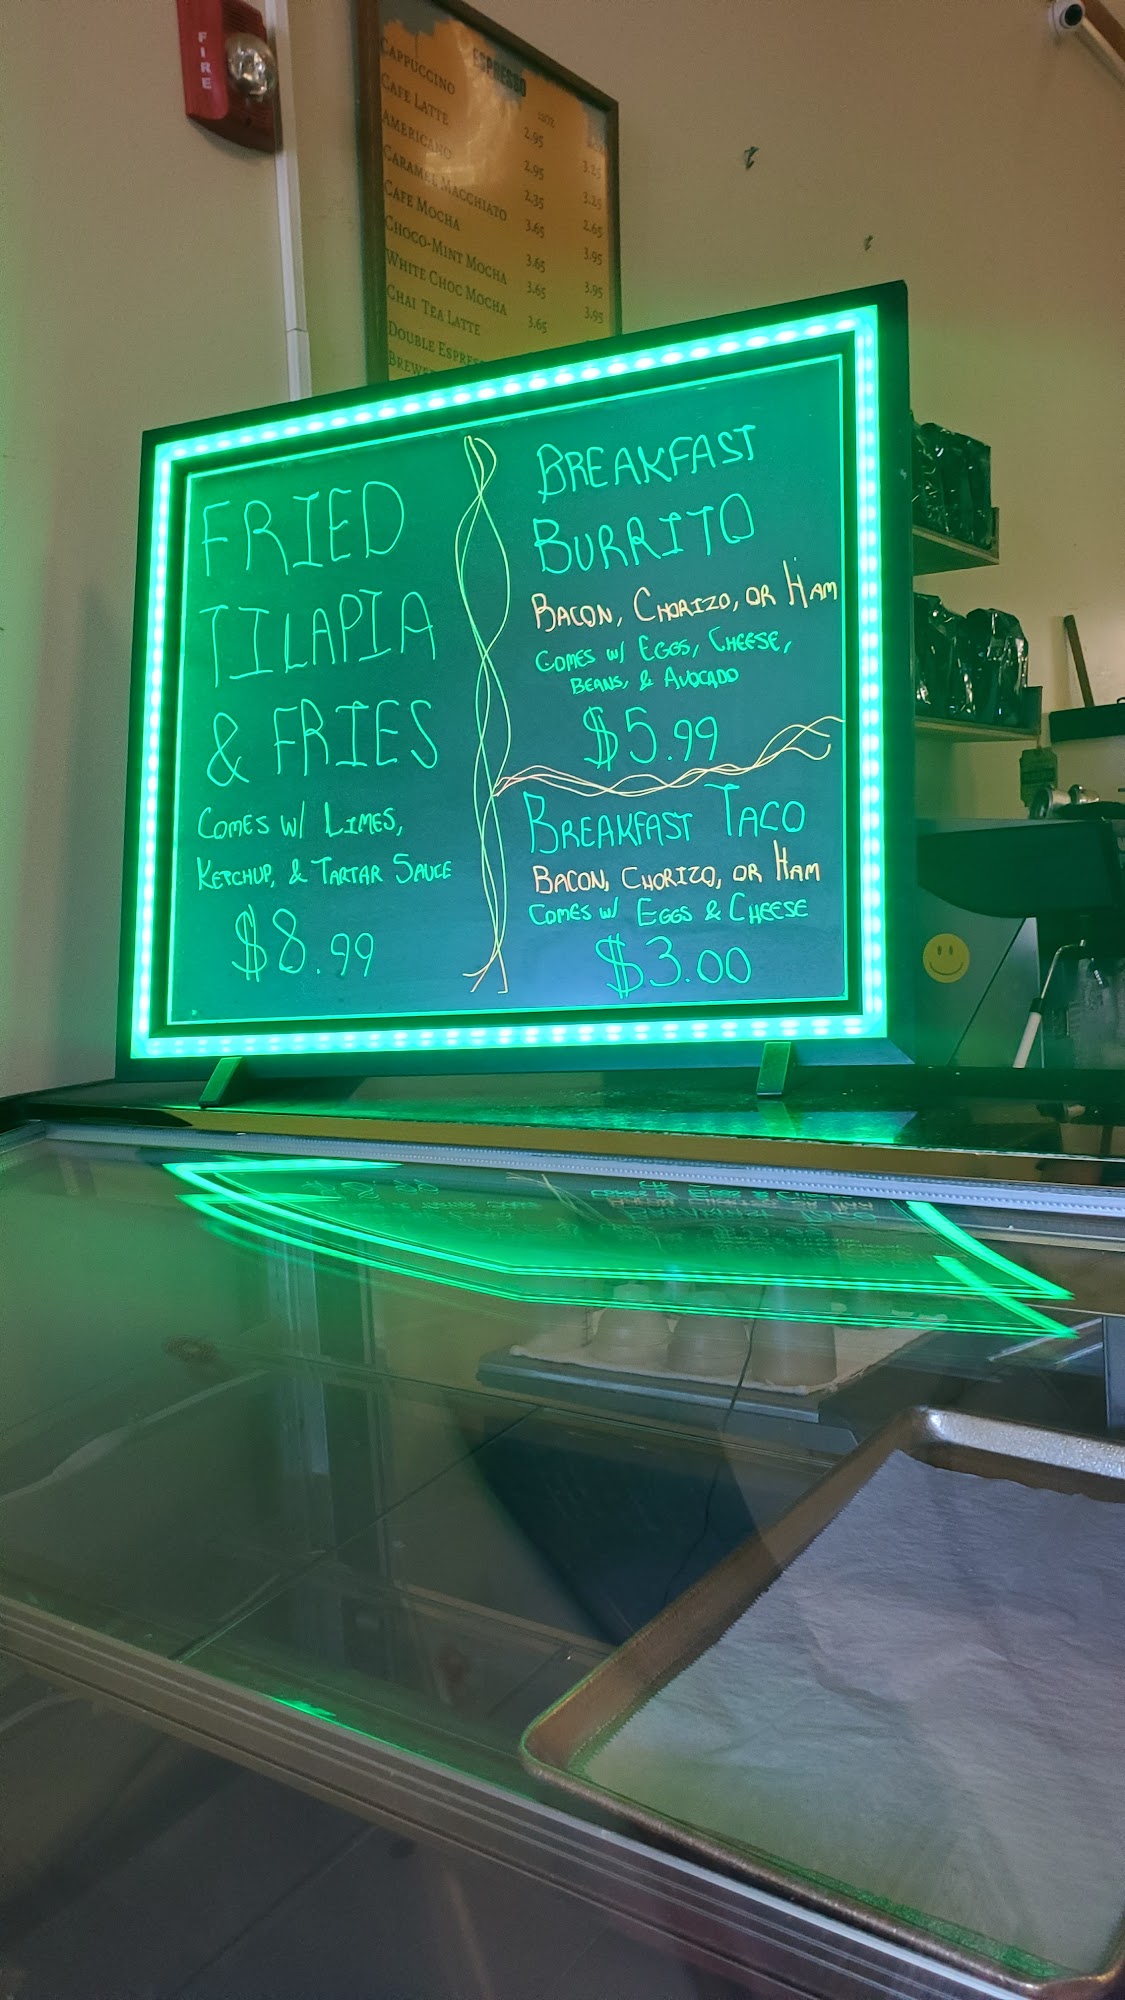 FIRE
ESPRESSO
12OZ
CAPPUCCINO 2.95 3.25
CAFE LATTE 2.95 3.25
AMERICANO 2.35 2.65
CARAMEL MACCHIATO 3.65 3.95
CAFE MOCHA 3.65 3.95
CHOCO-MINT MOCHA 3.65 3.95
WHITE CHOC MOCHA 3.65
CHAI TEA LATTE
DOUBLE
FRIED
TILAPIA
& FRIES
COMES W/ LIMES,
KETCHUP, & TARTAR SAUCE
$8.99
BREAKFAST
BURRITO
BACON, CHORIZO, OR HAM
COMES W/ EGGS, CHEESE,
BEANS, & AVOCADO
$5.99
BREAKFAST TACO
BACON, CHORIZO, OR HAM
COMES W/ EGGS & CHEESE
$3.00